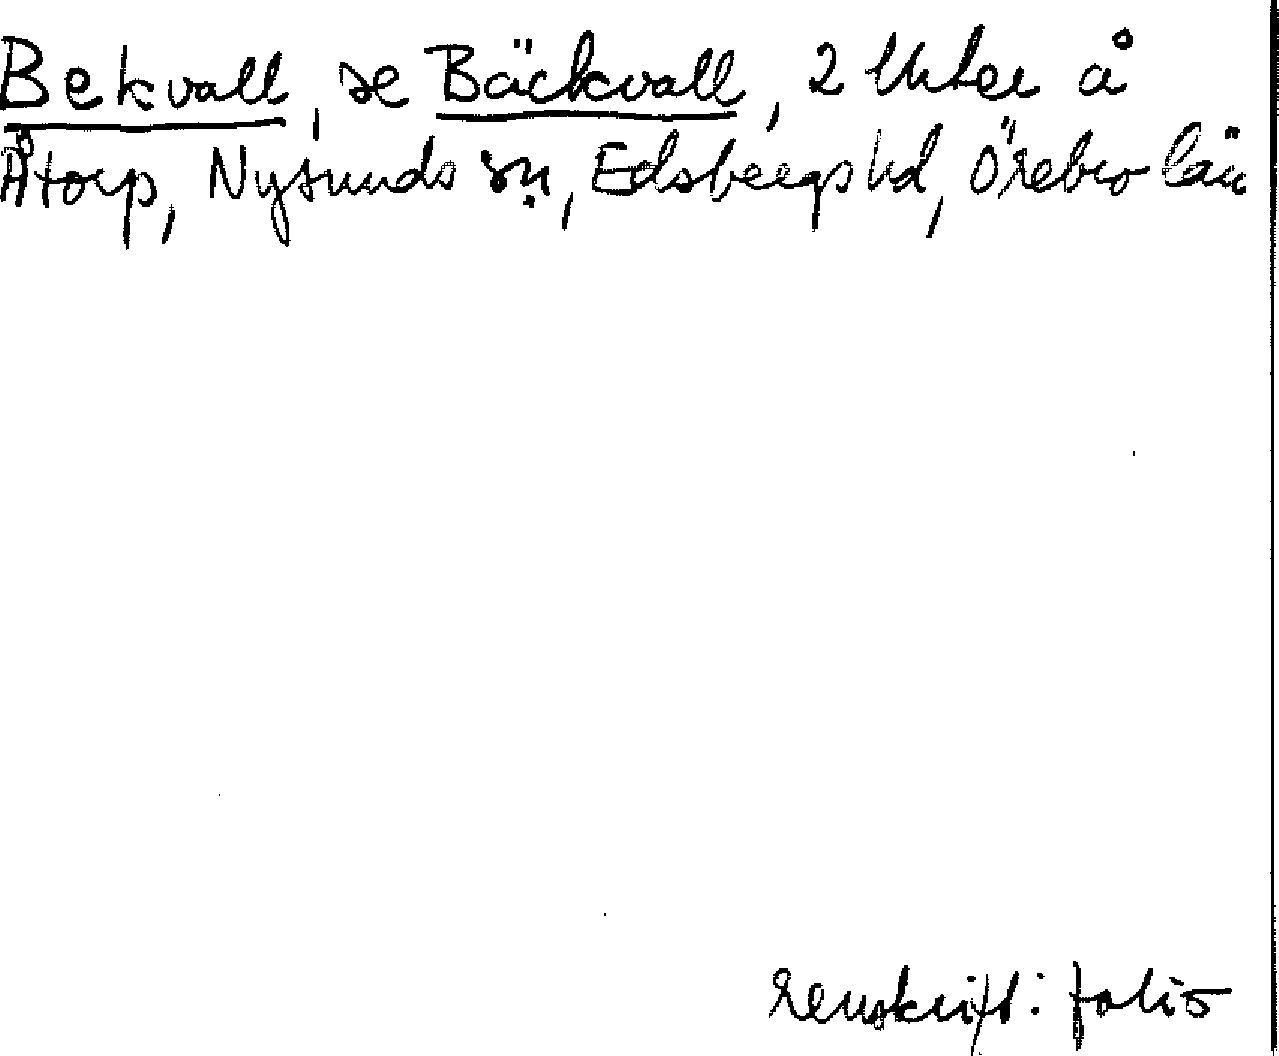 Bekvall, se Bäckvall, 2 lhter å
Åtorp, Nysunds sn, Edsbergs hd, Örebro län
renskrift: folio